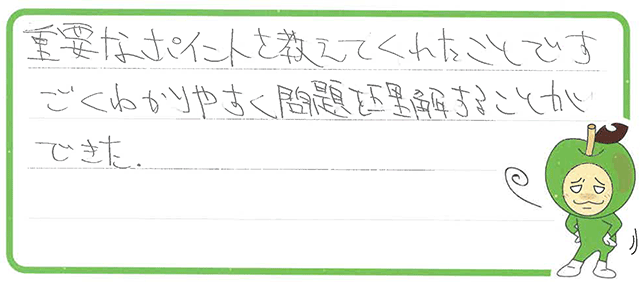 重要なポイントを教えてくれたことです
ごくわかりやすく問題を理解することが
できた.